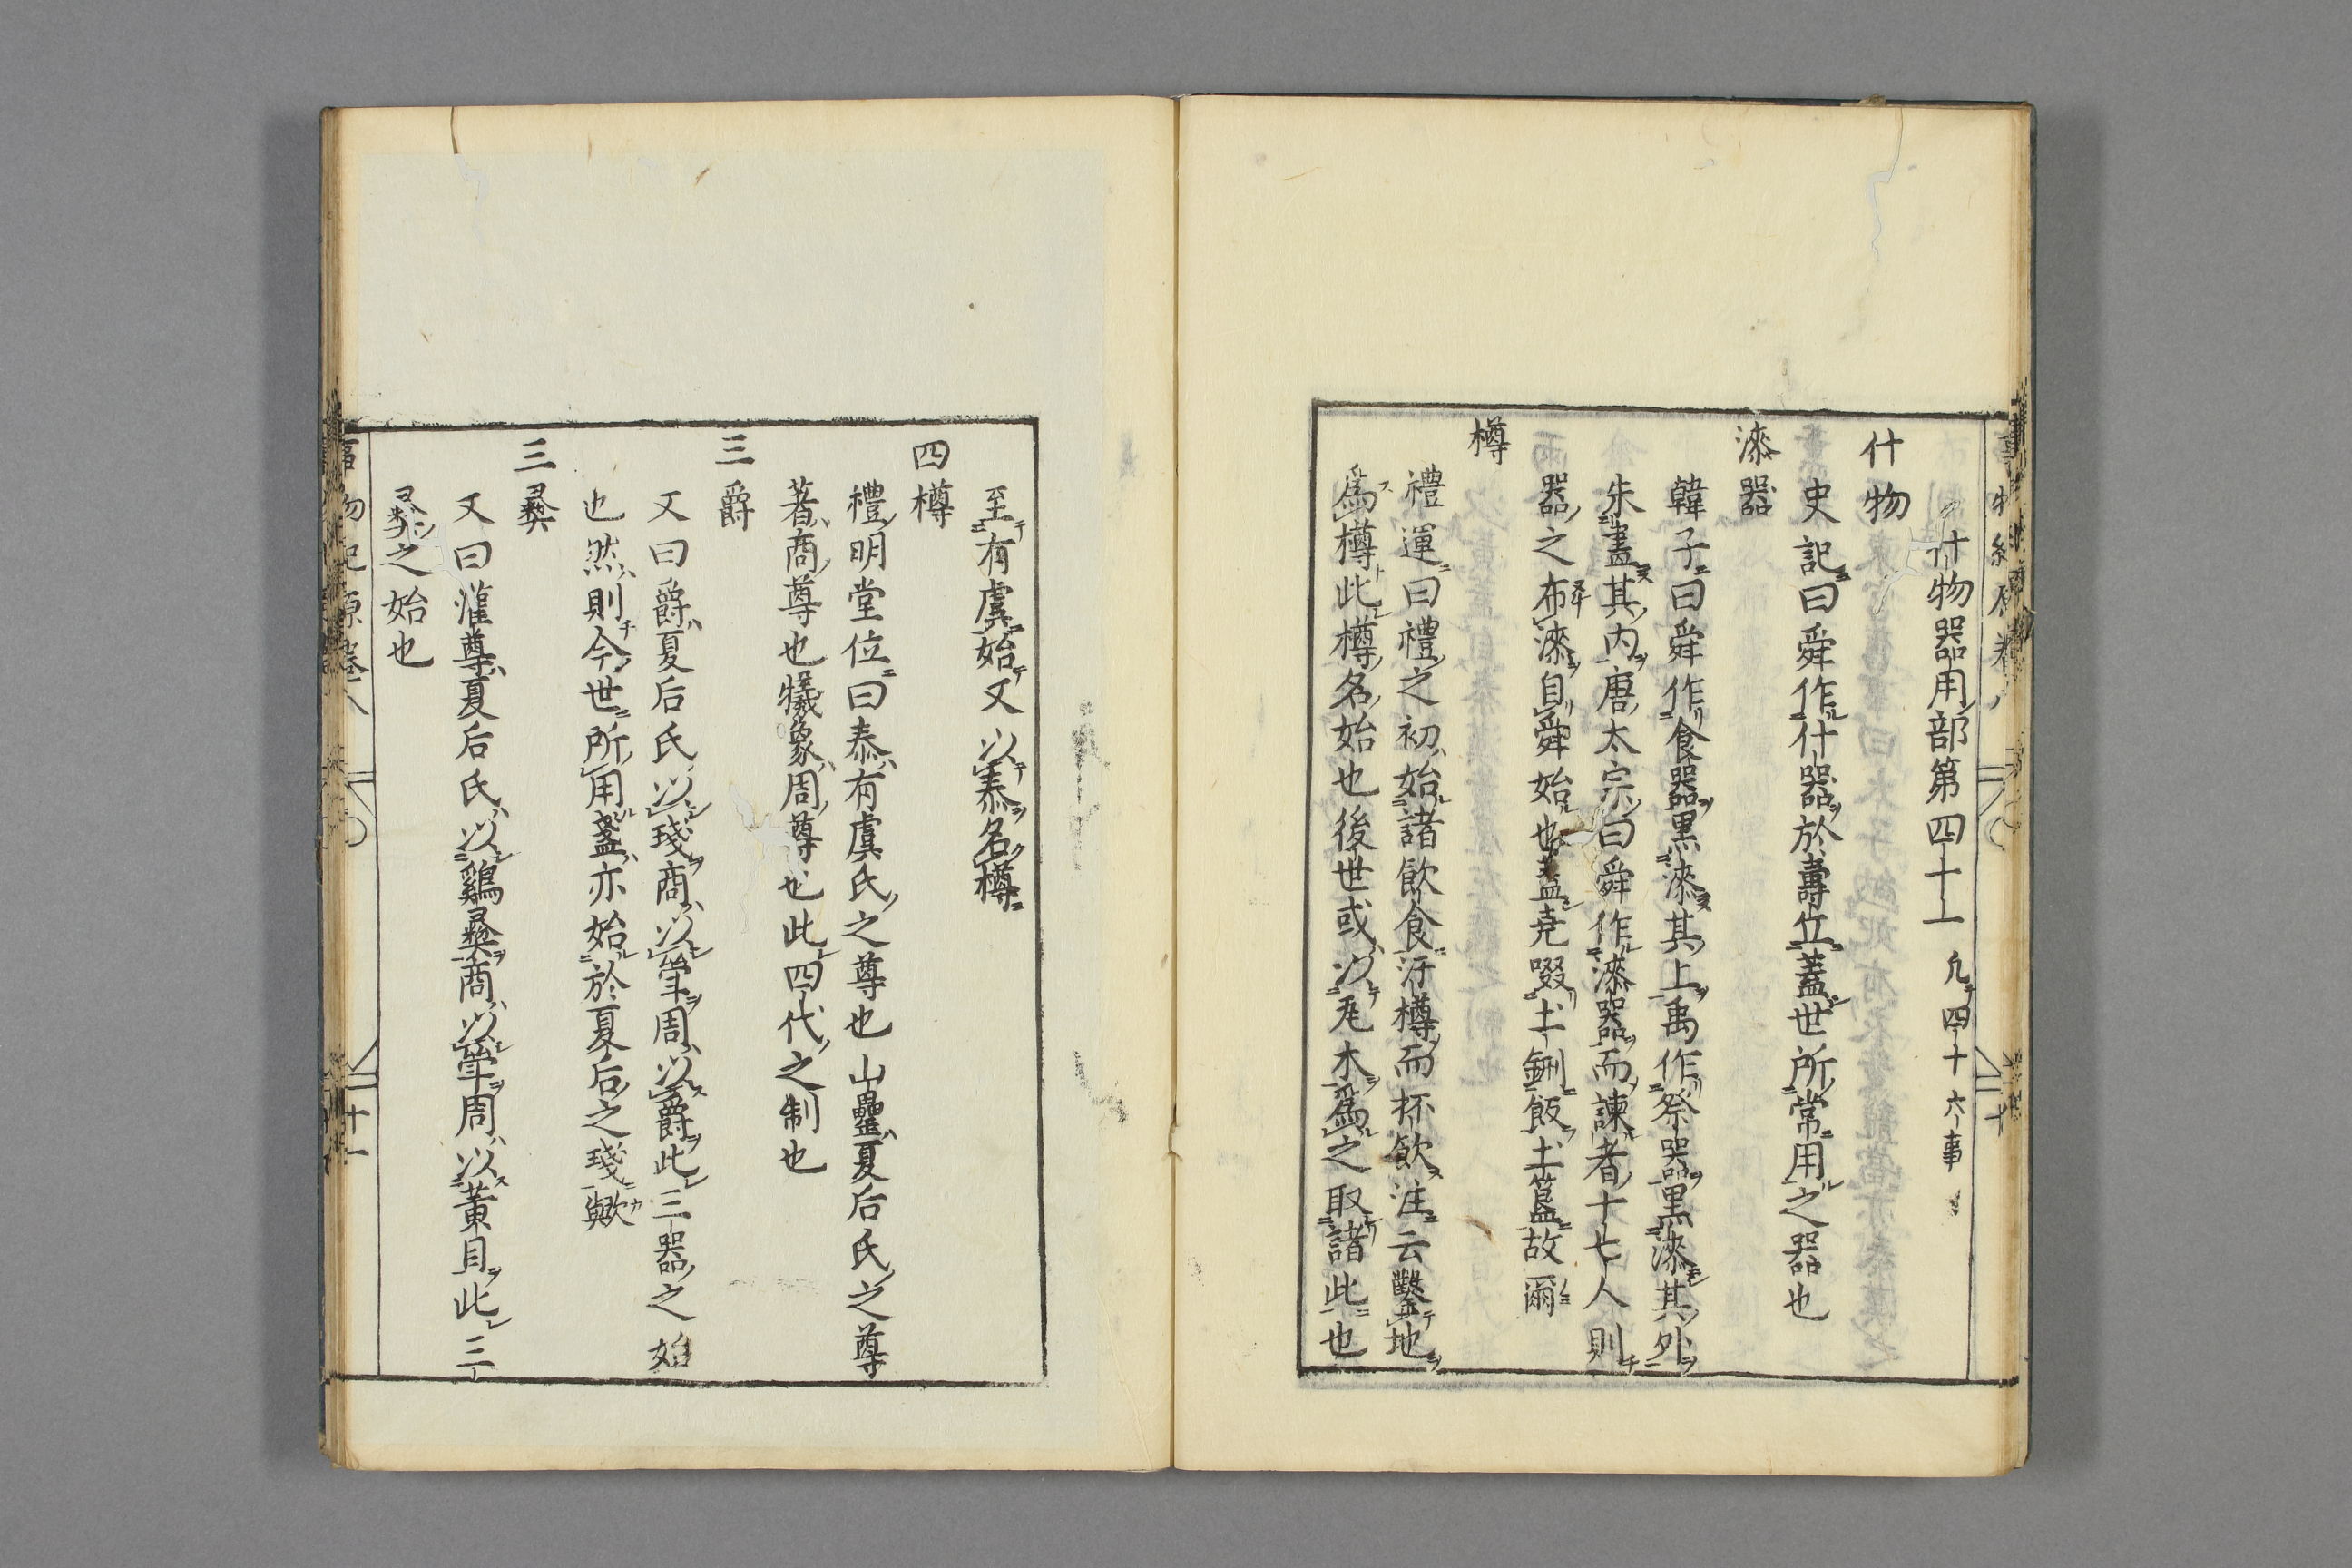 什物器用部第四十一　凡四十六事
什物
史記曰舜作什器於壽丘蓋世所常用之器也
漆器
韓子曰舜作食器黒漆其上禹作祭器黒漆其外
朱畫其内唐太宗曰舜作漆器而諫者十七人則
器之布漆自舜始也蓋堯啜土鉶飯土簋故爾
樽
禮運曰禮之初始諸飲食汙樽而抔飲注云鑿地
爲樽此樽名始也後世或以瓦木爲之取諸此也
至有虞始又以泰名樽
四樽
禮明堂位曰泰有虞氏之尊也山罍夏后氏之尊
著商尊也犧象周尊也此四代之制也
三爵
又曰爵夏后氏以琖商以斚周以爵此三器之始
也然則今世所用盞亦始於夏后之琖歟
三彝
又曰灌尊夏后氏以鷄彝商以斚周以黄目此三
彝之始也
事物紀原卷八
十一